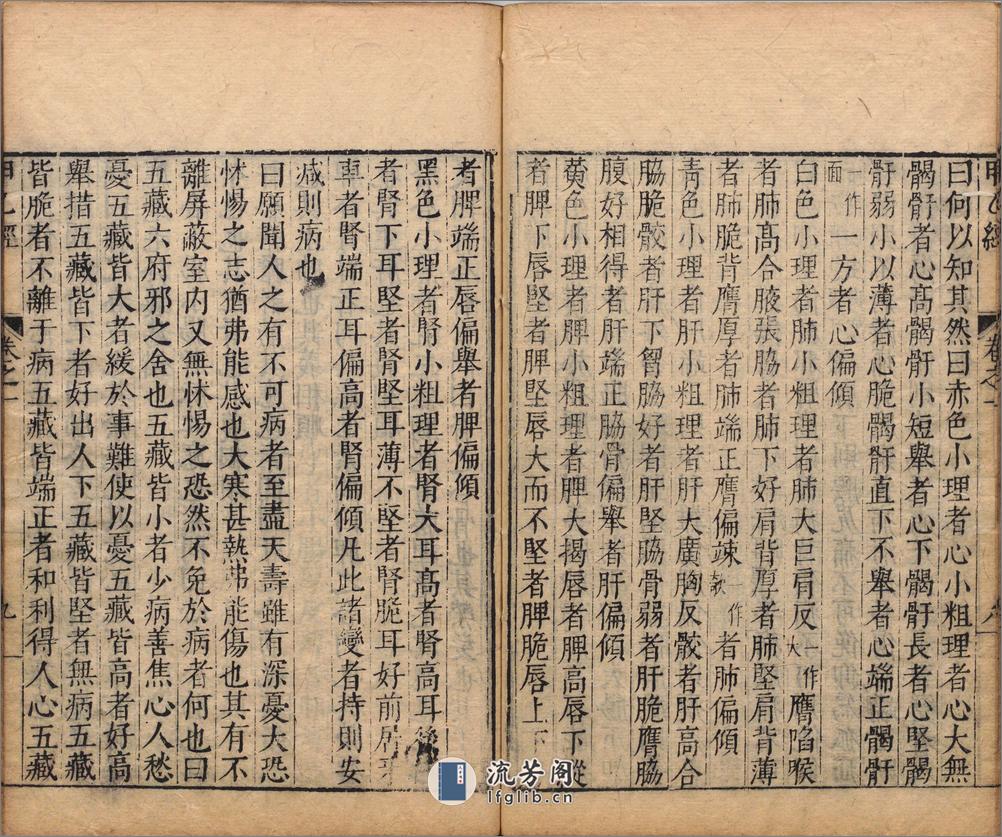 曰何以知其然曰赤色小理者心小粗理者心大無
𩩲骬者心高𩩲骬小短舉者心下𩩲骬長者心堅𩩲
骬弱小以薄者心脆𩩲骬直下不舉者心端正𩩲骬
一作面一方者心偏傾
白色小理者肺小粗理者肺大巨肩反一作大膺陷喉
者肺高合腋張脇者肺下好肩背厚者肺堅肩背薄
者肺脆背膺厚者肺端正膺偏竦一作欹者肺偏傾
青色小理者肝小粗理者肝大廣胸反骹者肝高合
脇脆骹者肝下胷脇好者肝堅脇骨弱者肝脆膺脇
腹好相得者肝端正脇骨偏舉者肝偏傾
黃色小理者脾小粗理者脾大揭唇者脾高唇下縱
者脾下唇堅者脾堅唇大而不堅者脾脆唇上下
者脾端正唇偏舉者脾偏傾
黑色小理者腎小粗理者腎大耳高者腎高耳後
者腎下耳堅者腎堅耳薄不堅者腎脆耳好前居牙
車者腎端正耳偏高者腎偏傾凡此諸變者持則安
減則病也
曰願聞人之有不可病者至盡天壽雖有深憂大恐
怵惕之志猶弗能感也大寒甚熱弗能傷也其有不
離屏蔽室內又無怵惕之恐然不免於病者何也曰
五藏六府邪之舍也五藏皆小者少病善焦心人愁
憂五藏皆大者緩於事難使以憂五藏皆高者好高
舉措五藏皆下者好出人下五藏皆堅者無病五藏
皆脆者不離于病五藏皆端正者和利得人心五藏
甲乙經
卷之一
九
流芳阁
lfglib.cn